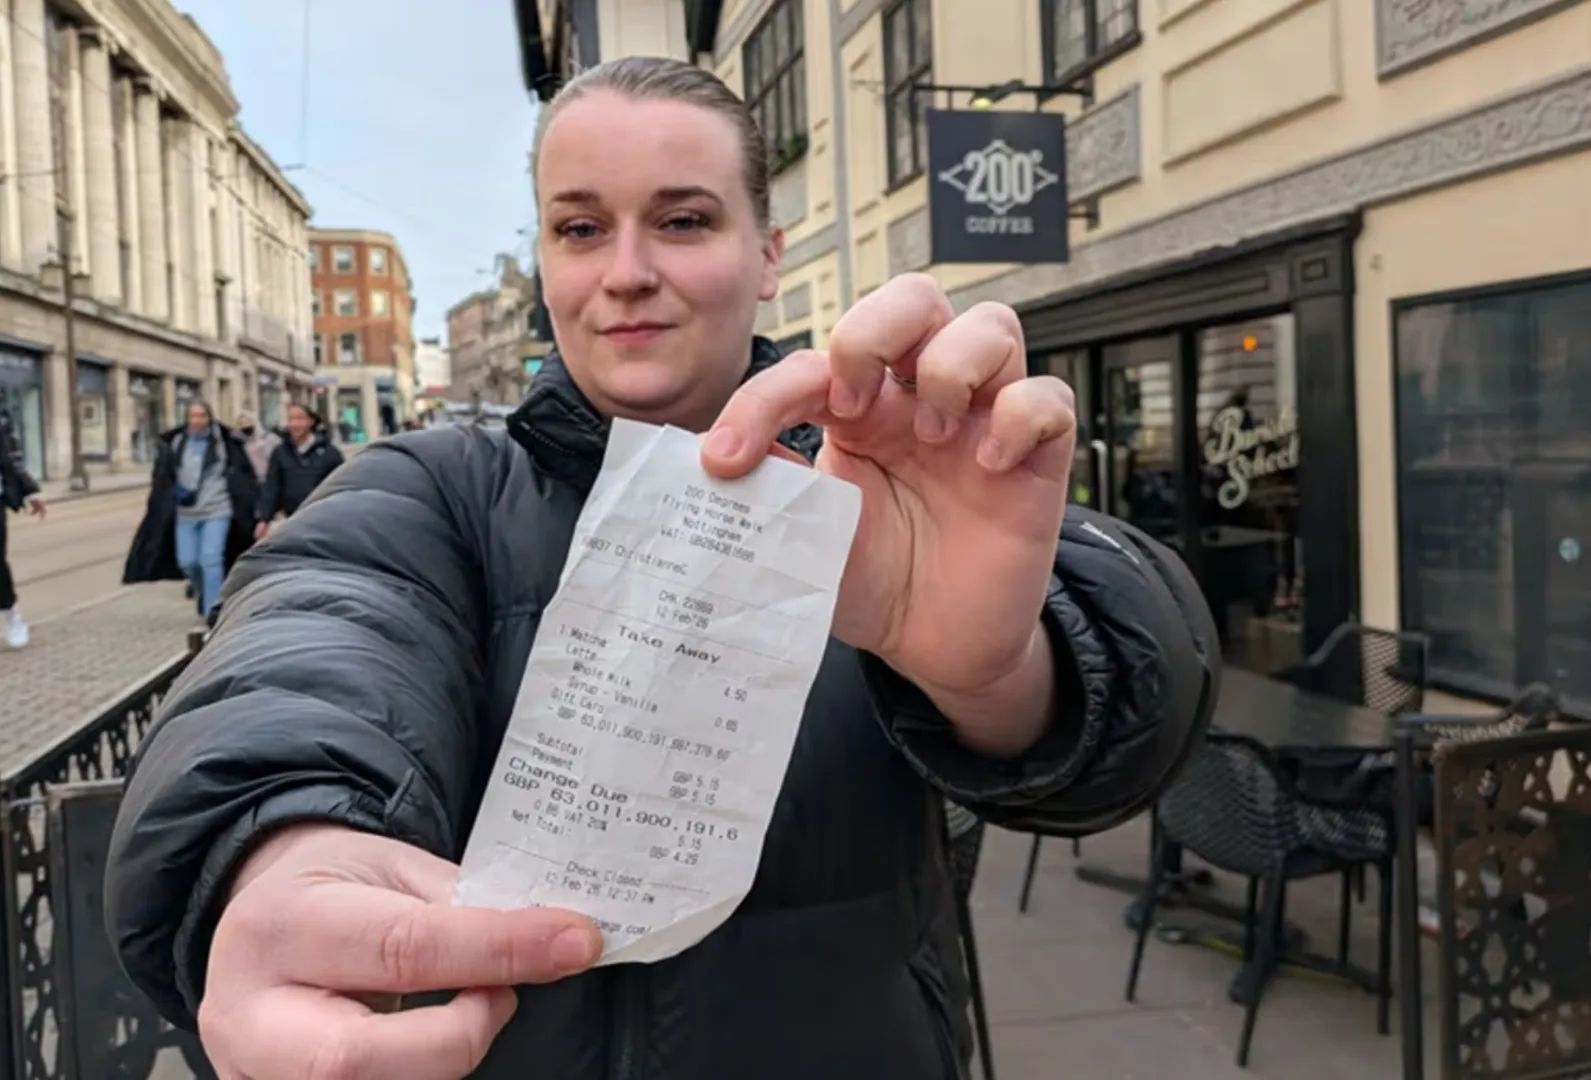 200°
COFFEE
Barista
School
200 Degrees
Flying Horse Walk
Nottingham
VAT: GB284361686
ChristianneC
CHK 22669
12 Feb'26
Take Away
1 Matcha 
Latte 4.50
Whole Milk
Syrup - Vanilla 0.65
Gift Card
- GBP 63,011,900,191,687,379.60
Subtotal GBP 5.15
Payment GBP 5.15
Change Due
GBP 63,011,900,191,6
0.86 VAT 20% 5.15
Net Total: GBP 4.29
Check Closed
12 Feb'26 12:37 PM